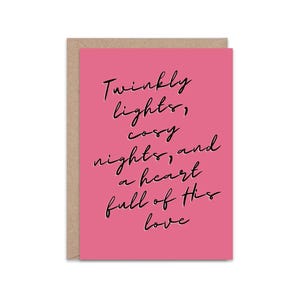 Twinkly
lights,
cosy
nights, and
a heart
full of His
love